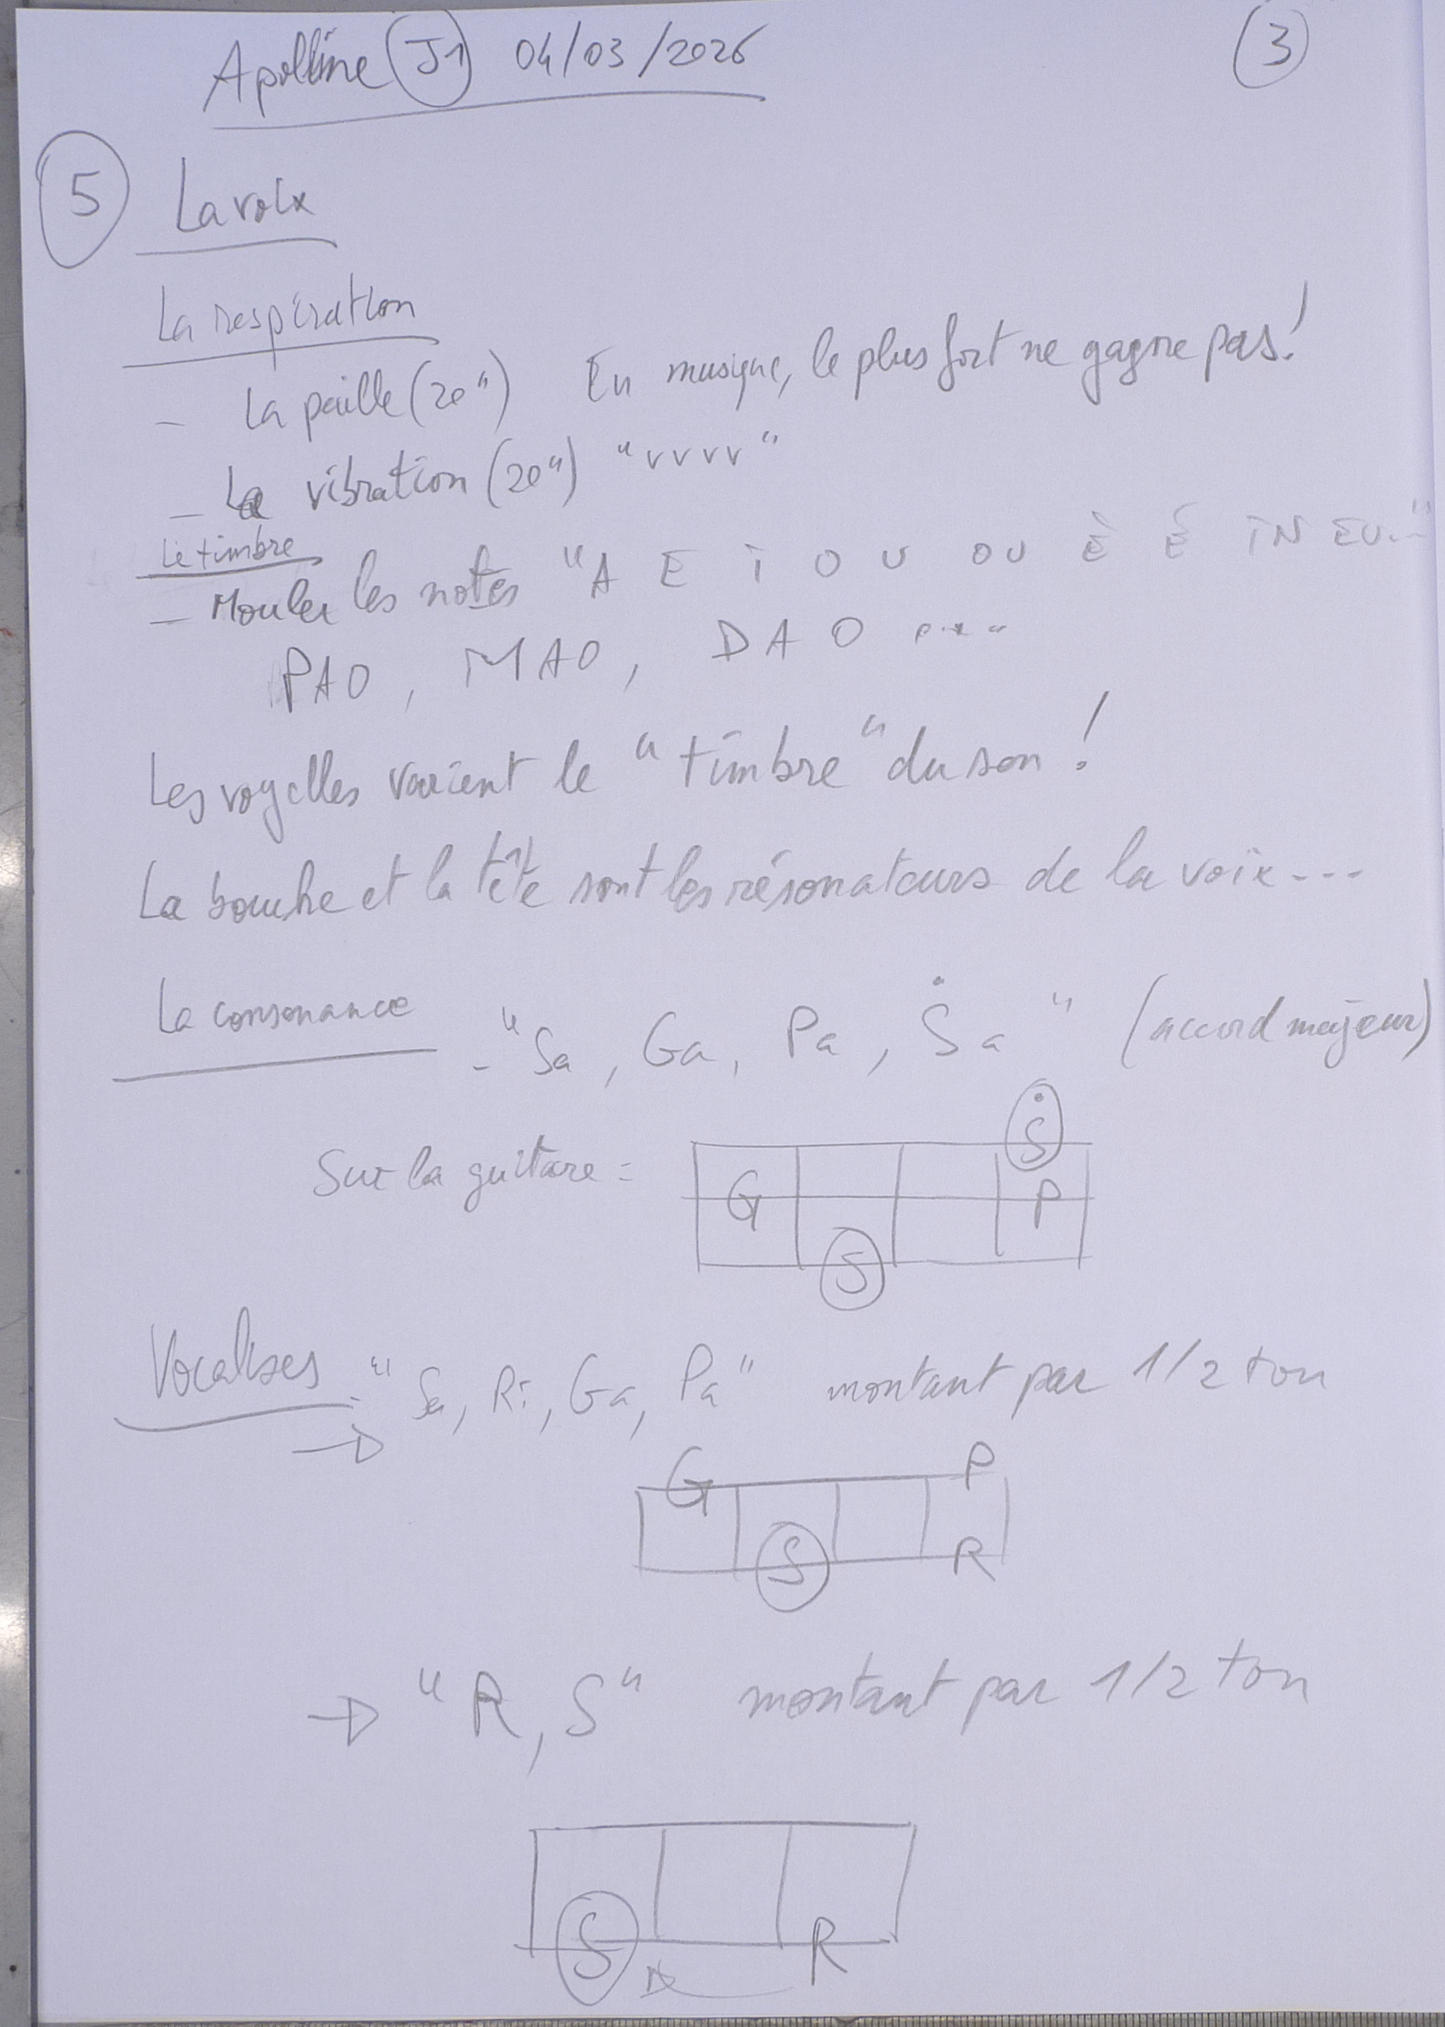 Apolline (J1) 04/03/2026
(3)
(5) La voix
La respiration
- La paille (20") En musique, le plus fort ne gagne pas!
- La vibration (20") "vvvv"
Le timbre
- Mouler les notes "A E I O U OU È É IN EU..."
PAO, MAO, DAO ....
Les voyelles varient le "timbre" du son!
La bouche et la tête sont les résonateurs de la voix...
La consonance - "Sa, Ga, Pa, Ṡa" (accord majeur)
Sur la guitare =
Ṡ
G P
S
Vocalises - "Sa, Ri, Ga, Pa" montant par 1/2 ton
→
G P
S R
→ "R, S" montant par 1/2 ton
S R